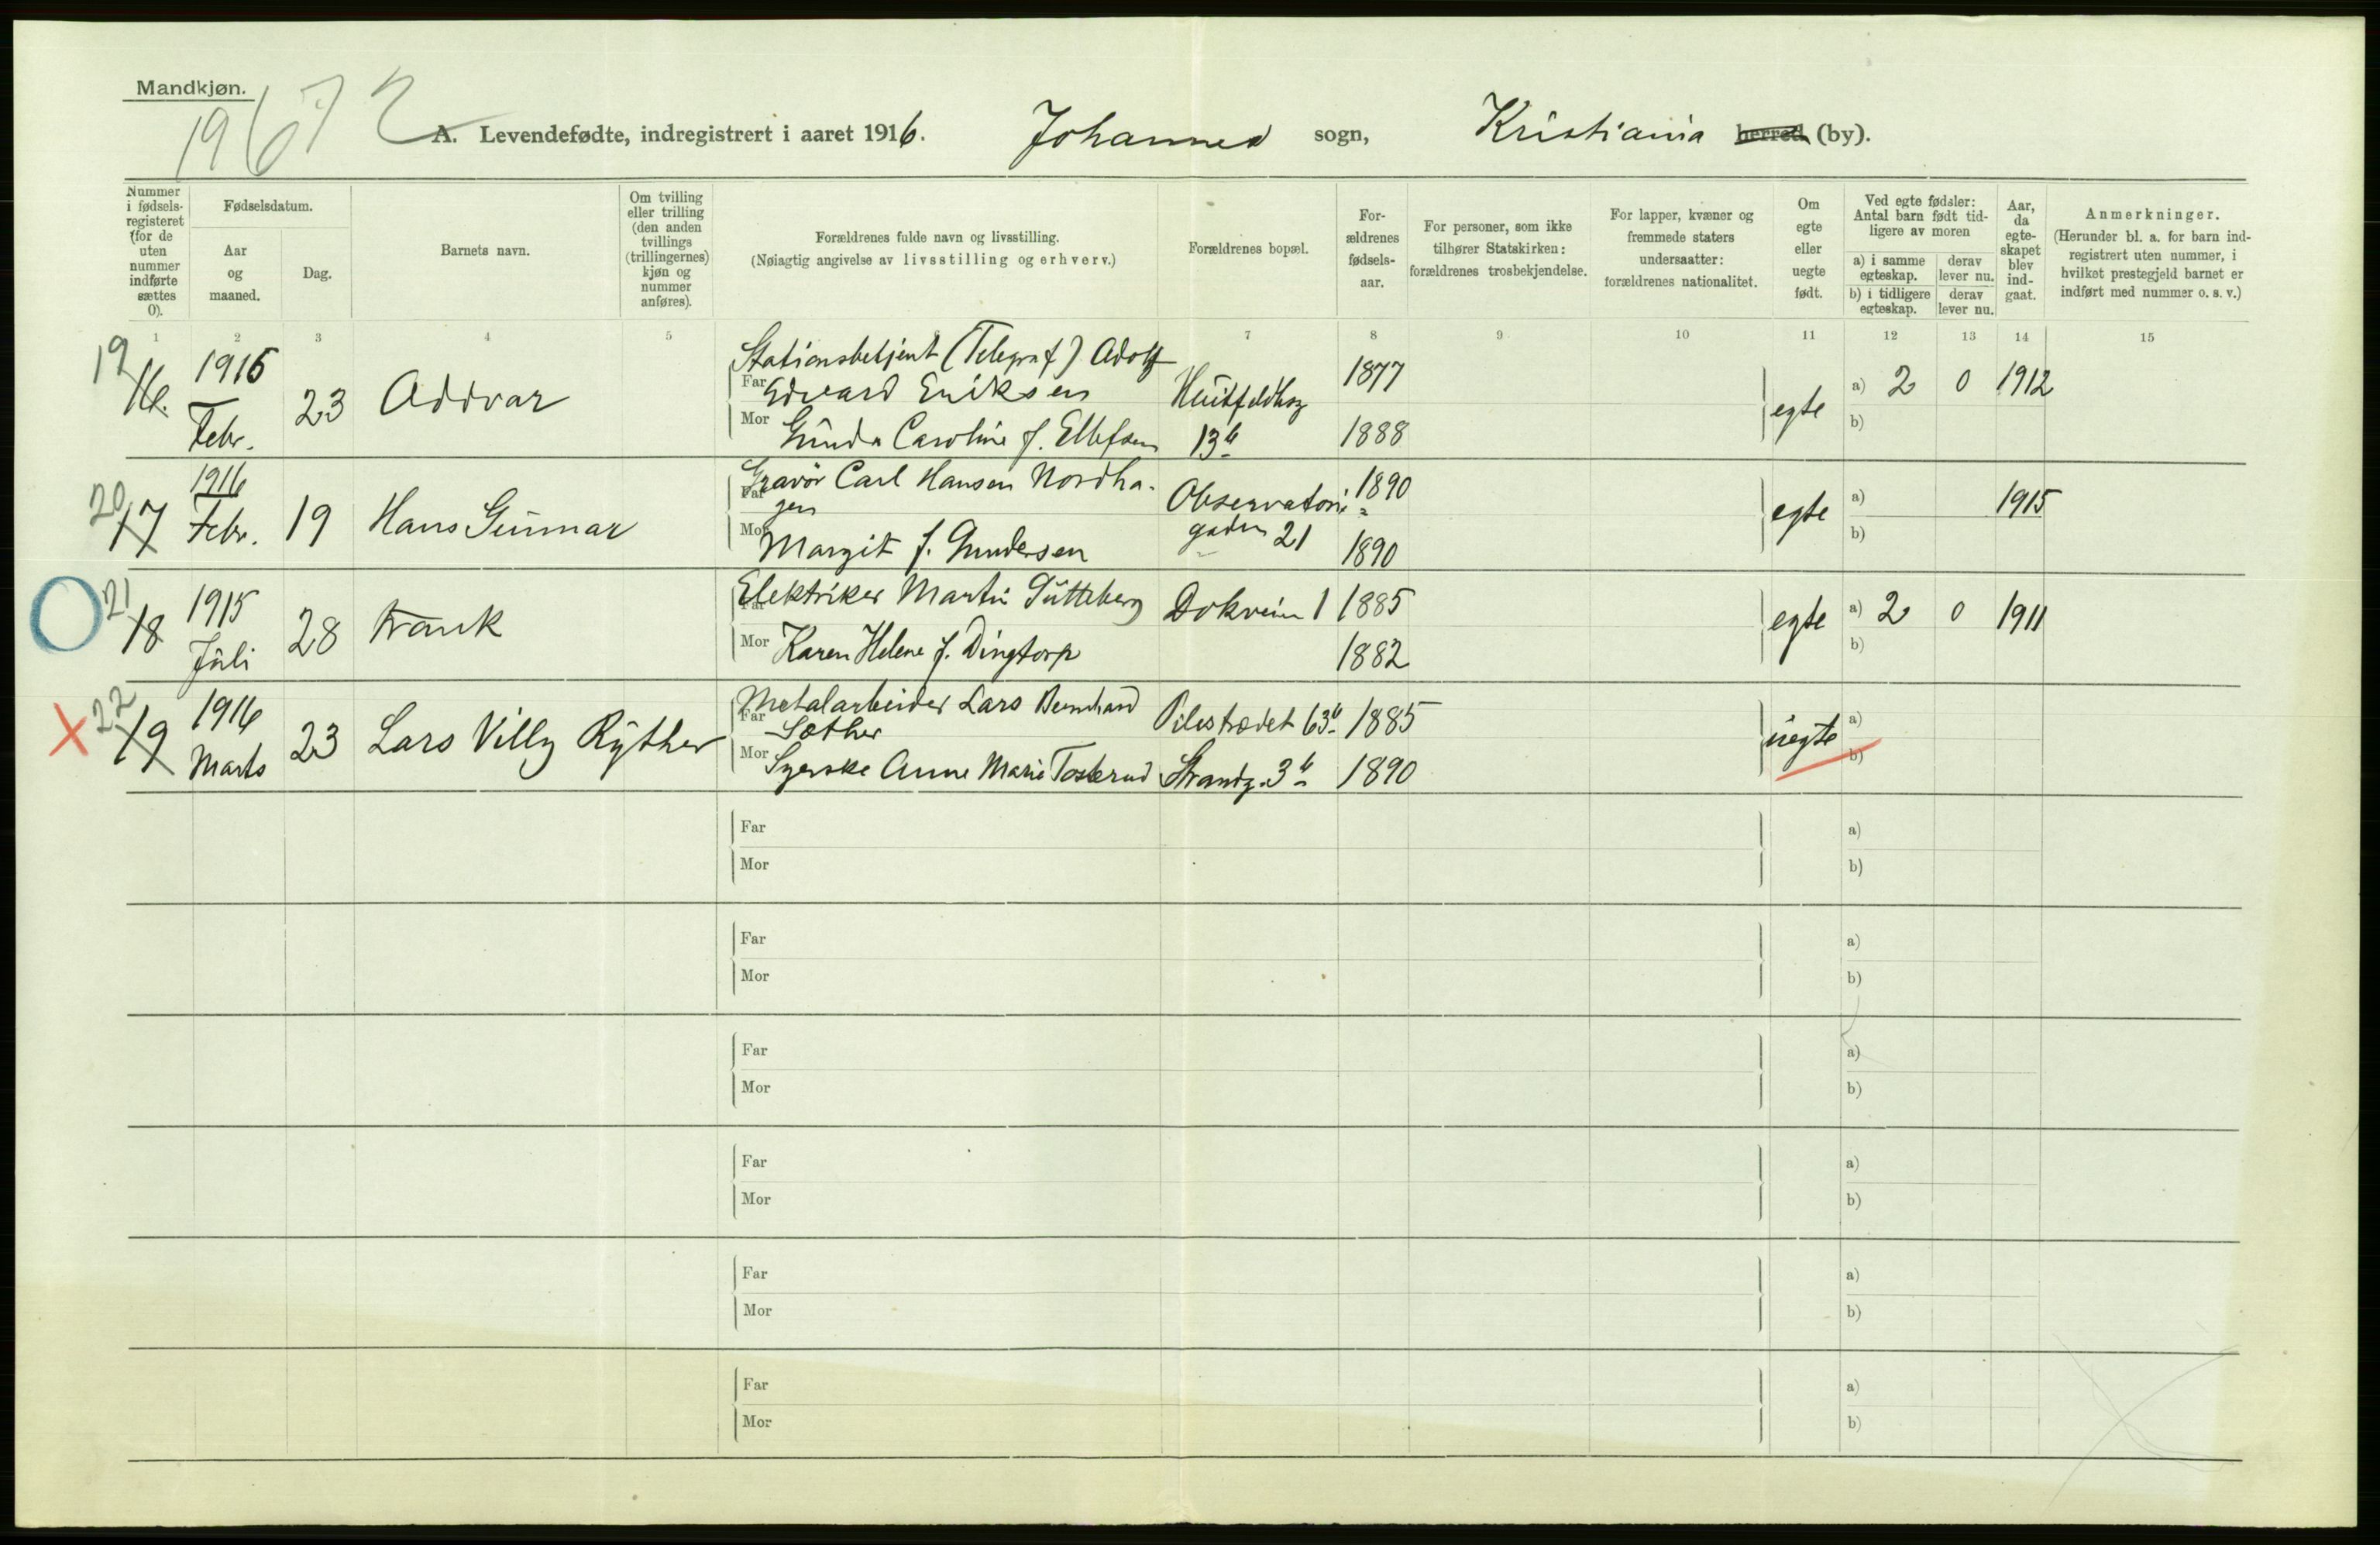 Mandkjøn.
19672
A. Levendefødte, indregistrert i aaret 1916. Johannes sogn, Kristiania herred (by).
Nummer i fødselsregisteret (for de uten nummer indførte sættes 0).
Fødselsdatum.
Aar og maaned.
Dag.
Barnets navn.
Om tvilling eller trilling (den anden tvillings (trillingernes) kjøn og nummer anføres).
Forældrenes fulde navn og livsstilling.
(Nøiagtig angivelse av livsstilling og erhverv.)
Forældrenes bopæl.
Forældrenes fødselsaar.
For personer, som ikke tilhører Statskirken: forældrenes trosbekjendelse.
For lapper, kvæner og fremmede staters undersaatter: forældrenes nationalitet.
Om egte eller uegte født.
Ved egte fødsler: Antal barn født tidligere av moren
a) i samme egteskap. derav lever nu.
b) i tidligere egteskap. derav lever nu.
Aar, da egteskapet blev indgaat.
Anmerkninger.
(Herunder bl. a. for barn indregistrert uten nummer, i hvilket prestegjeld barnet er indført med nummer o. s. v.)
1 2 3 4 5 7 8 9 10 11 12 13 14 15
19 16. 1915 Febr. 23 Oddvar
Stationsbetjent (Telegraf) Adolf
Far Edvard Eriksen Huitfeldtsg 1877
Mor Gunda Caroline f. Ellefsen 13b 1888
egte a) 2 0 1912
b)
20 17 1916 Febr. 19 Hans Gunnar
Gravör Carl Hansen Nordha-
Far gen Observatorie 1890
gaden 21
Mor Margit f. Gundersen 1890
egte a) 1915
b)
21 18 1915 Juli 28 Frank
Far Elektriker Martin Gutteberg Dokveien 1 1885
Mor Karen Helene f. Dingtorp 1882
egte a) 2 0 1911
b)
X 22 19 1916 Marts 23 Lars Villy Ryther
Metalarbeider Lars Bernhard
Far Sæther Pilestrædet 63b 1885
Mor Syerske Anne Marie Tosterud Strandg. 3b 1890
uegte a)
b)
Far a)
Mor b)
Far a)
Mor b)
Far a)
Mor b)
Far a)
Mor b)
Far a)
Mor b)
Far a)
Mor b)